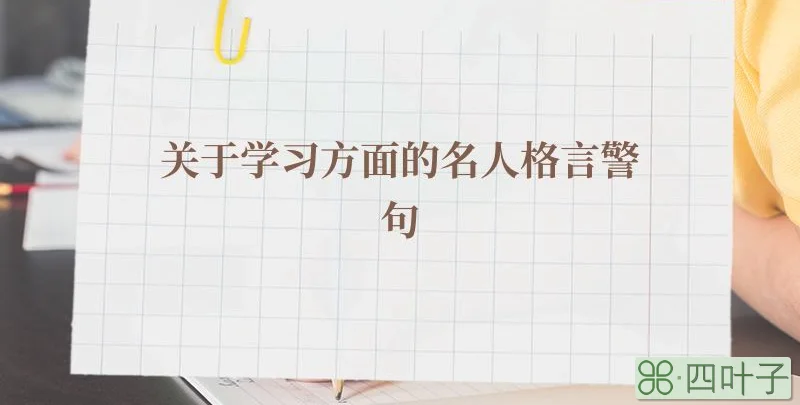 关于学习方面的名人格言警
句
⌘·四叶子